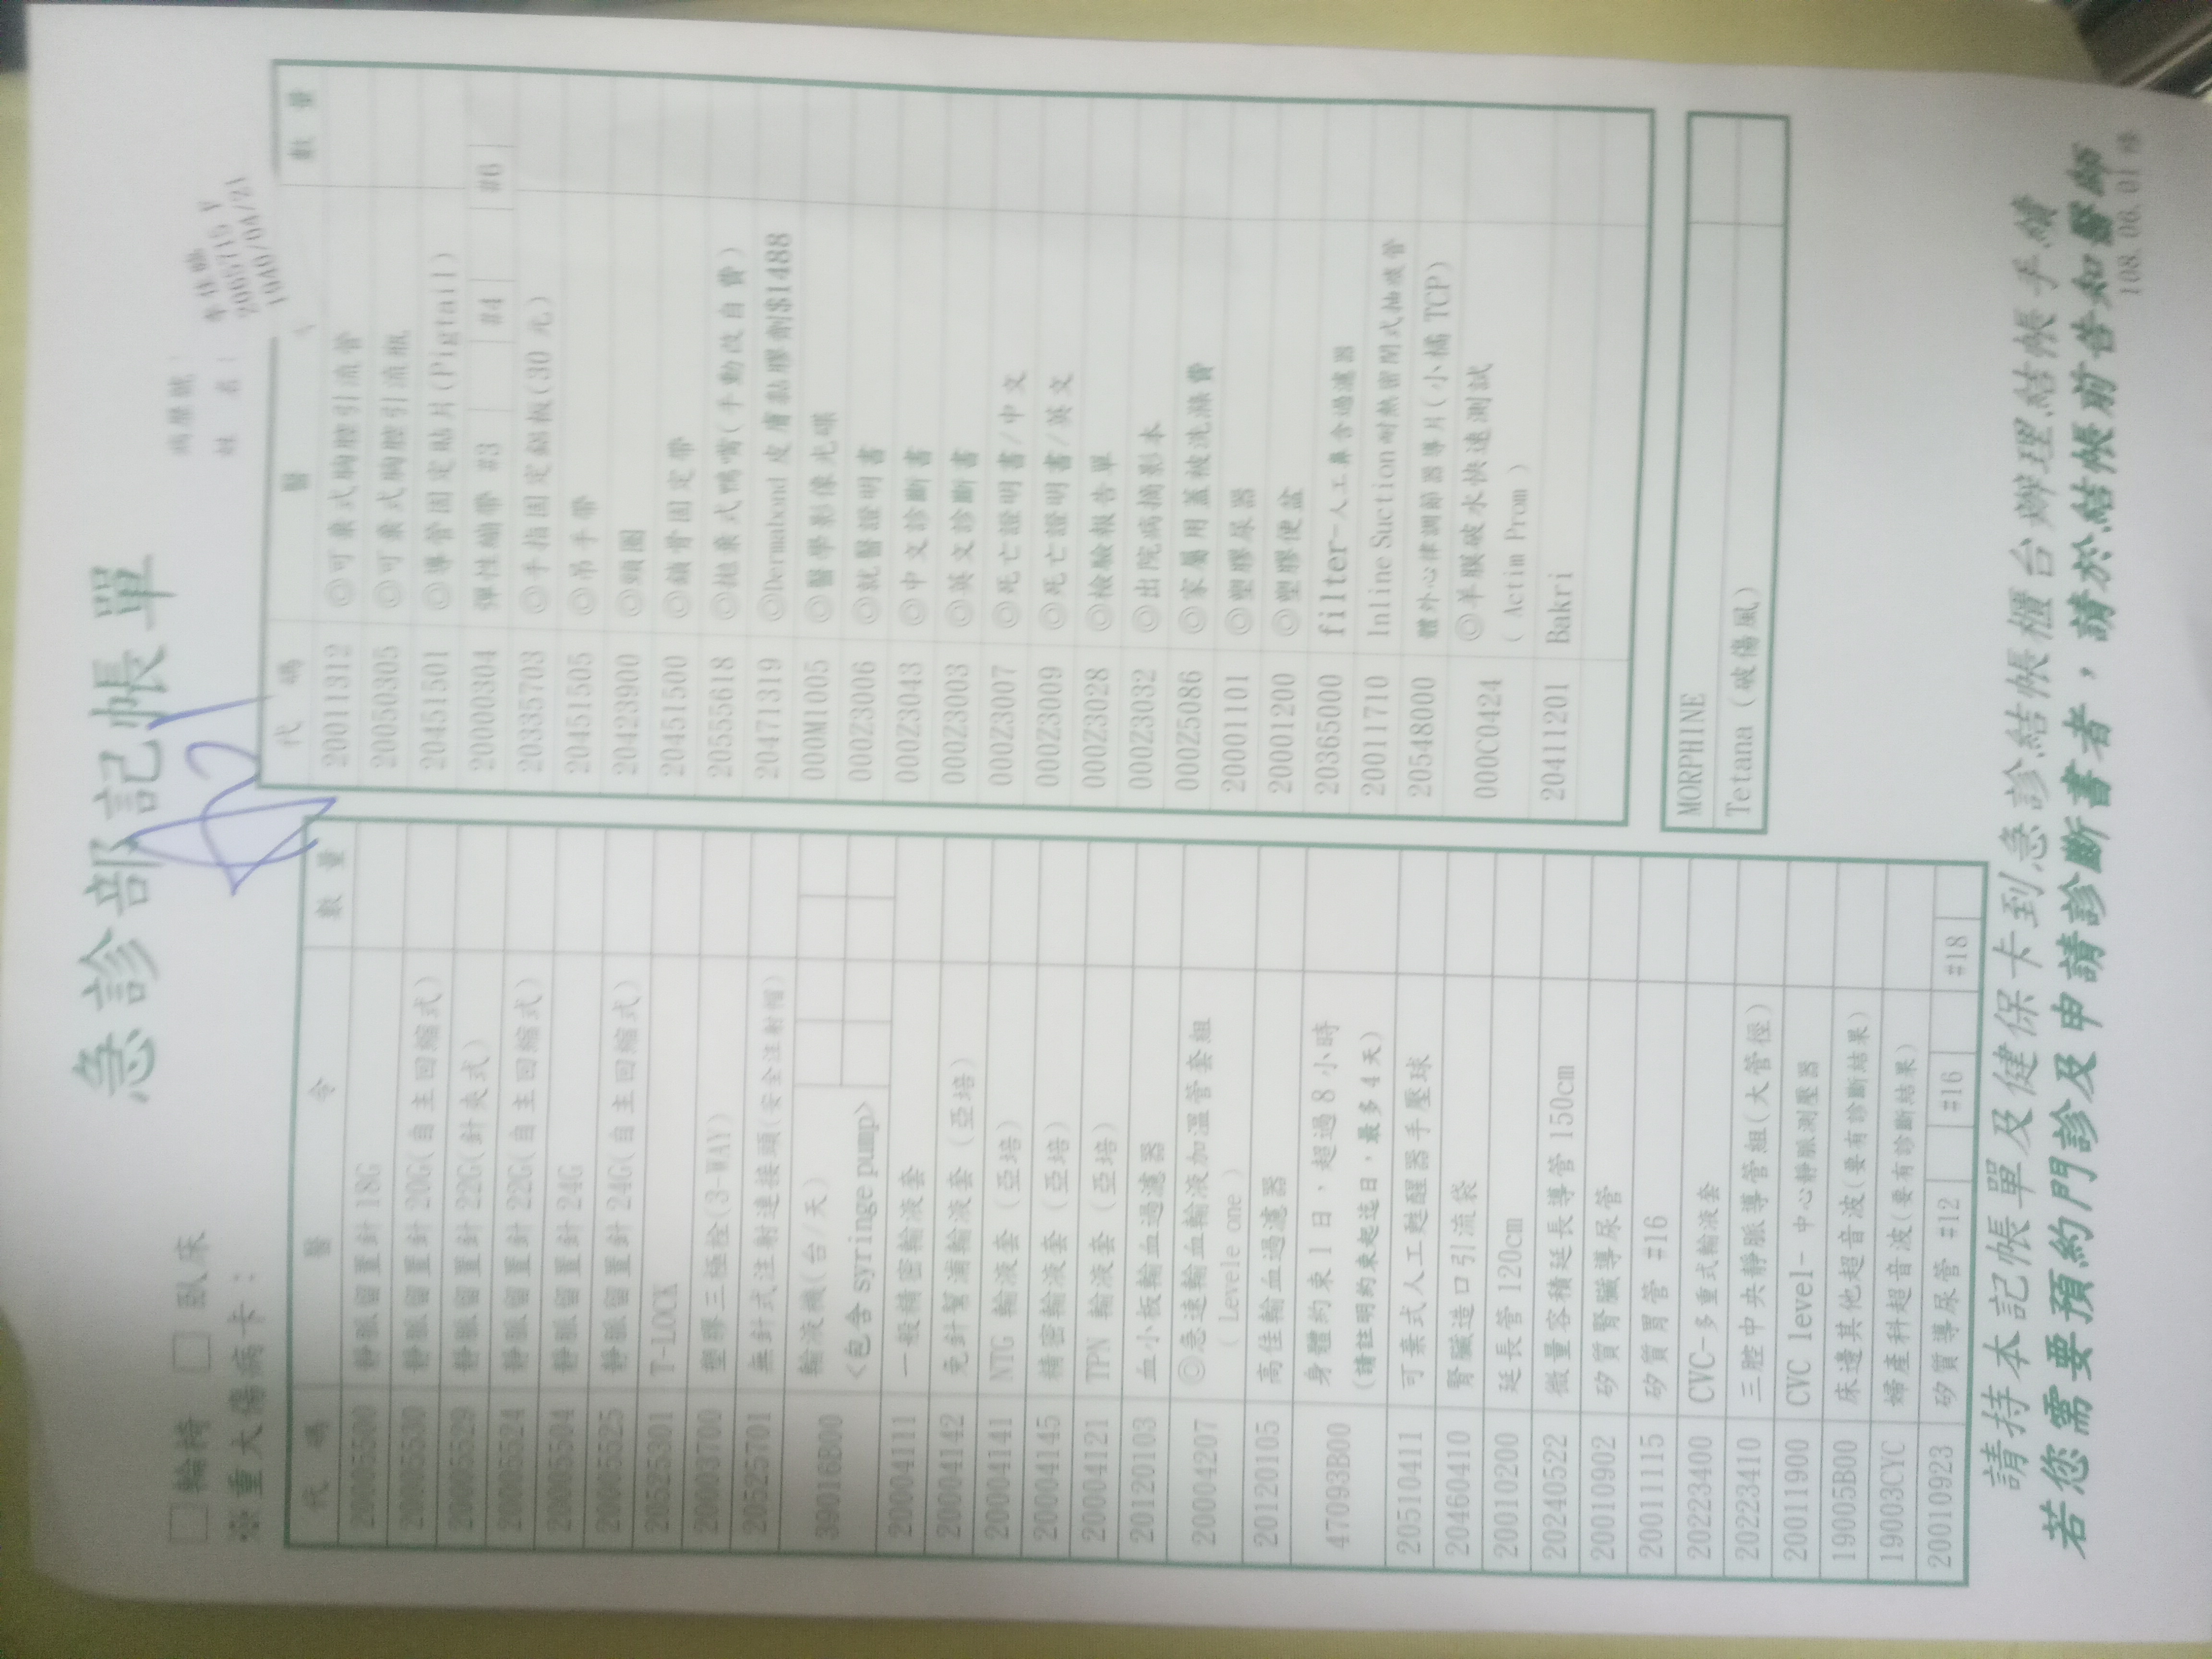 急診部記帳單
□ 輪椅 □ 臥床
※重大傷病卡：
病歷號
姓 名：
代 碼 醫 令 數 量
200005500 靜脈留置針 18G
200005530 靜脈留置針 20G(自主回縮式)
200005529 靜脈留置針 22G(針夾式)
200005524 靜脈留置針 22G(自主回縮式)
200005504 靜脈留置針 24G
200005525 靜脈留置針 24G(自主回縮式)
205525301 T-LOCK
200003700 塑膠三極栓(3-WAY)
205525701 無針式注射連接頭(安全注射帽)
39016B00 輸液機(台/天)
<包含 syringe pump>
200004111 一般精密輸液套
200004142 免針幫浦輸液套 (亞培)
200004141 NTG 輸液套 (亞培)
200004145 精密輸液套 (亞培)
200004121 TPN 輸液套 (亞培)
20120103 血小板輸血過濾器
200004207 ◎急速輸血輸液加溫管套組
( Levele one )
20120105 高佳輸血過濾器
47093B00 身體約束 1 日，超過 8 小時
(請註明約束起迄日，最多 4 天)
205510411 可棄式人工甦醒器手壓球
20460410 腎臟造口引流袋
20010200 延長管 120cm
20240522 微量容積延長導管 150cm
20010902 矽質腎臟導尿管
20011115 矽質胃管 #16
202223400 CVC-多重式輸液套
202223410 三腔中央靜脈導管組(大管徑)
20011900 CVC level- 中心靜脈測壓器
19005B00 床邊其他超音波(要有診斷結果)
19003CYC 婦產科超音波(要有診斷結果)
20010923 矽質導尿管 #12 #16 #18
代 碼 醫 數 量
20011312 ◎可棄式胸腔引流管
20050305 ◎可棄式胸腔引流瓶
20451501 ◎導管固定貼片(Pigtail)
20000304 彈性繃帶 #3 #4 #6
20335703 ◎手指固定鋁板(30 元)
20451505 ◎吊手帶
20423900 ◎頸圈
20451500 ◎鎖骨固定帶
20555618 ◎拋棄式鴨嘴(手動改自費)
20471319 ◎Dermabond 皮膚黏膠劑$1488
000M1005 ◎醫學影像光碟
000Z3006 ◎就醫證明書
000Z3043 ◎中文診斷書
000Z3003 ◎英文診斷書
000Z3007 ◎死亡證明書/中文
000Z3009 ◎死亡證明書/英文
000Z3028 ◎檢驗報告單
000Z3032 ◎出院病摘影本
000Z5086 ◎家屬用蓋被洗滌費
20001101 ◎塑膠尿器
20001200 ◎塑膠便盆
20365000 filter-人工鼻含過濾器
20011710 Inline Suction 耐熱密閉式抽痰管
20548000 體外心律調節器導片(小橘 TCP)
000C0424 ◎羊膜破水快速測試
( Actim Prom )
20411201 Bakri
MORPHINE
Tetana (破傷風)
請持本記帳單及健保卡到急診結帳櫃台辦理結帳手續
若您需要預約門診及申請診斷書者，請於結帳前告知醫師
108.06.01 修